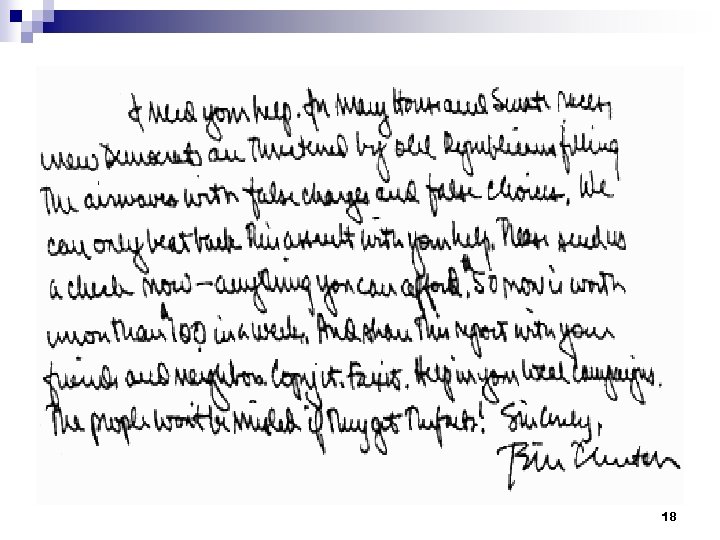 I need your help. In many House and Senate races,
new Democrats are threatened by old Republicans filling
the airwaves with false charges and false choices. We
can only beat back this assault with your help. Please send us
a check now — anything you can afford. $50 now is worth
more than $100 in a week. And share this report with your
friends and neighbors. Copy it. Fax it. Help in your local campaigns.
The people won't be misled if they get the facts! Sincerely,
Bill Clinton
18